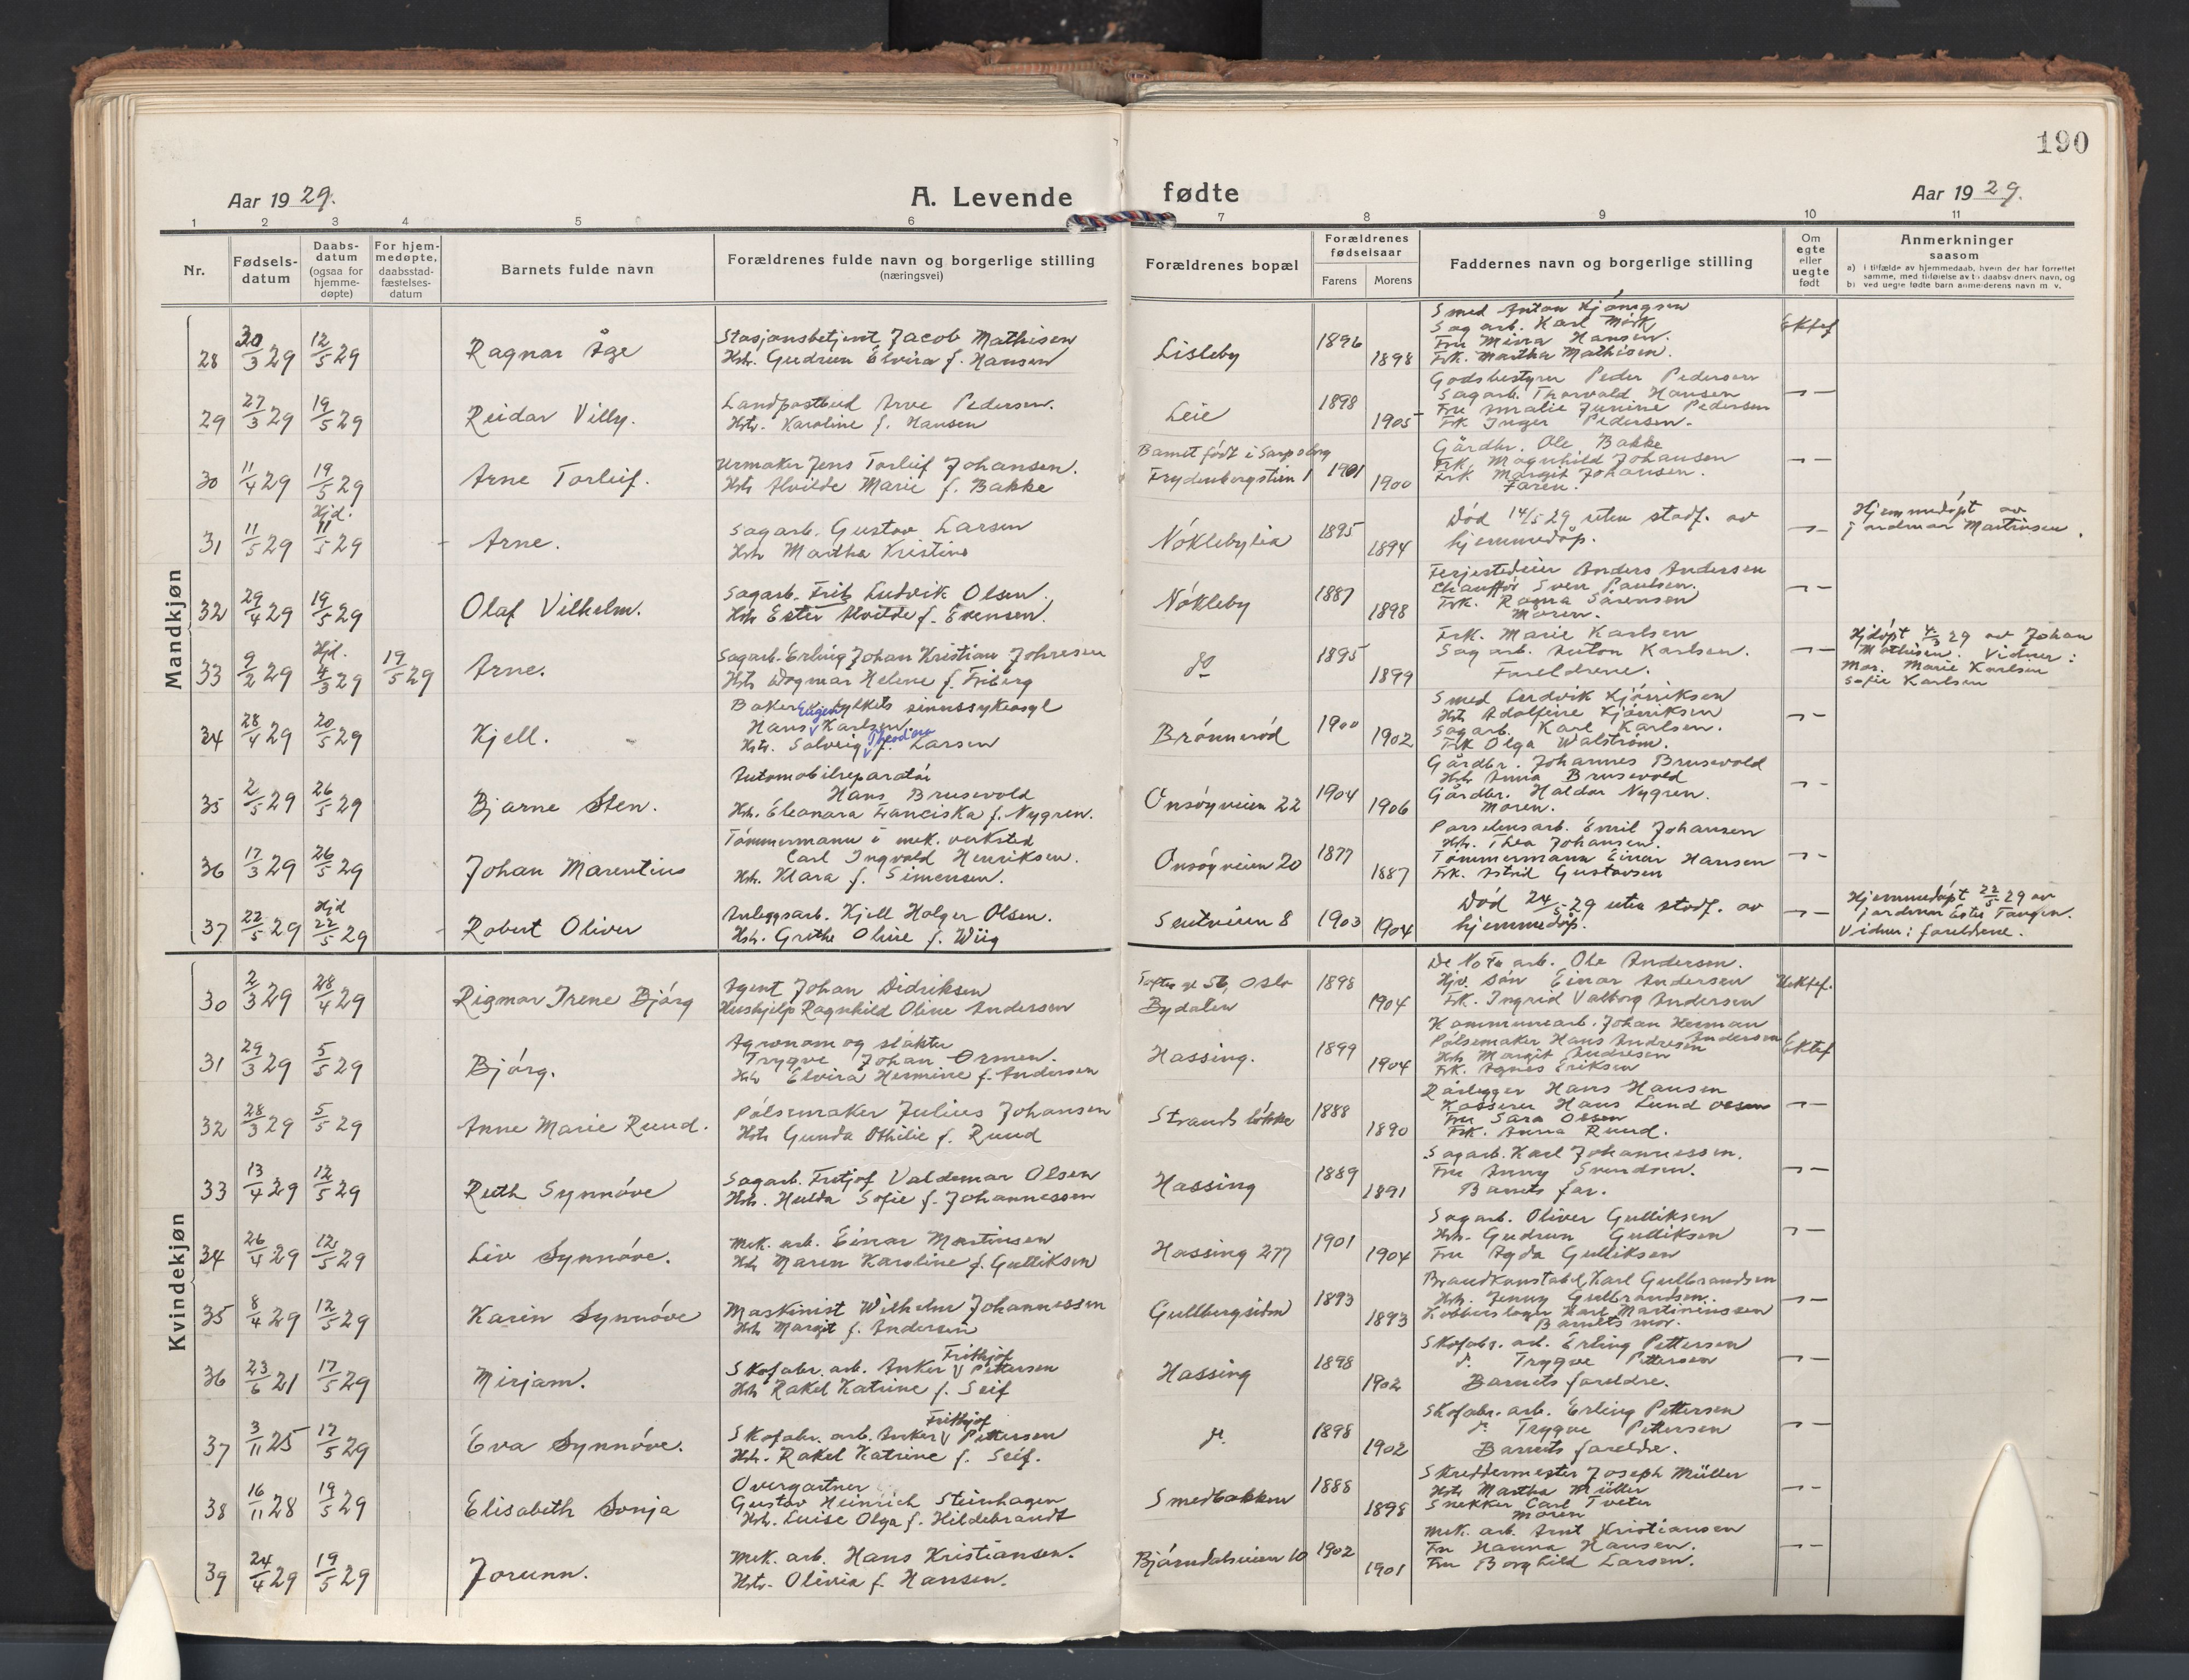 190
Aar 1929.
A. Levende
fødte
Aar 1929.
1 2 3 4 5 6 7 8 9 10 11
Nr.
Fødsels-datum
Daabs-datum (ogsaa for hjemme-døpte)
For hjem-medøpte, daabsstad-fæstelses-datum
Barnets fulde navn
Forældrenes fulde navn og borgerlige stilling
(næringsvei)
Forældrenes bopæl
Forældrenes fødselsaar
Farens Morens
Faddernes navn og borgerlige stilling
Om egte eller uegte født
Anmerkninger
saasom
a) i tilfælde av hjemmedaab, hvem der har forrettet
samme, med tilføielse av to daabsvidners navn, og
b) ved uegte fødte barn anmelderens navn m. v.
Mandkjøn
28 30/3 29 12/5 29 Ragnar Åge
Stasjonsbetjent Jacob Mathisen
Hstr. Gudrun Elvira f. Hansen
Lisleby 1896 1898
Smed Anton
Sagarb. Karl Mørk
Fru Mina Hansen.
Frk. Martha Mathisen.
Ektef
29 27/3 29 19/5 29 Reidar Villy.
Landpostbud Arve Pedersen.
Hstr. Karoline f. Hansen
Leie 1898 1905
Godsbestyrer Peder Pedersen
Sagarb. Thorvald Hansen
Fru Amalie Junine Pedersen
Frk Inger Pedersen.
30 11/4 29 19/5 29 Arne Torleif.
Urmaker Jens Torleif Johansen.
Hstr Alvilde Marie f. Bakke
Barnet født i Sarpsborg
Frydenbergstien 1 1901 1900
Gårdbr. Ole Bakke
Frk. Magnhild Johansen
Frk Margit Johansen.
Faren.
31 11/5 29 Hjd. 11/5 29 Arne.
Sagarb. Gustav Larsen
Hstr Martha Kristine
Nøklebylia 1895 1894
Død 14/5 29 uten stadf. av
hjemmedåp.
Hjemmedøpt av
jordmor Martinsen.
32 29/4 29 19/5 29 Olaf Vilhelm.
Sagarb. Frits Ludvik Olsen.
Hstr Ester Alvilde f. Evensen.
Nøkleby 1887 1898
Ferjestedeier Anders Andersen
Chauffør Sven Paulsen.
Frk. Ragna Sørensen
Moren.
33 9/2 29 Hjd. 4/3 29 19/5 29 Arne.
Sagarb. Erling Johan Kristian Johresen
Hstr Dagmar Helene f. Friberg
do 1895 1899
Frk. Marie Karlsen
Sagarb. Anton Karlsen.
Foreldrene.
Hjdøpt 4/3 29 av Johan
Mathisen. Vidner:
Marie Karlsen
Sofie Karlsen
34 28/4 29 20/5 29 Kjell.
Baker fylkets sinnssykeasyl
Hans Eugen Karlsen.
Hstr. Solveig Theodora f. Larsen
Brønnerød 1900 1902
Smed Ludvik Kjønniksen
Hstr Adolfine Kjønniksen
Sagarb. Karl Karlsen.
Frk Olga Walstrøm.
35 2/5 29 26/5 29 Bjarne Sten.
Automobilreparatør
Hans Brusevold
Hstr. Eleonara Franciska f. Nygren.
Onsøyveien 22 1904 1906
Gårdbr. Johannes Brusevold
Hstr Anna Brusevold
Gårdbr. Haldor Nygren.
Moren.
36 17/3 29 26/5 29 Johan Marentius
Tømmermann i mek. verksted
Carl Ingvald Henriksen.
Hstr. Klara f. Simensen.
Onsøyveien 20 1877 1887
Porselensarb. Emil Johansen
Hstr. Thea Johansen.
Tømmermann Einar Hansen
Frk. Astrid Gustavsen
37 22/5 29 Hjd 22/5 29 Robert Oliver
Anleggsarb. Kjell Holger Olsen.
Hstr. Grethe Oline f. Wiig
8 1903 1904
Død 24/5 29 uten stadf. av
hjemmedåp.
Hjemmedøpt 22/5 29 av
jordmor Ester Tangen.
Vidner: foreldrene.
Kvindekjøn
30 2/3 29 28/4 29 Rigmor Irene Bjørg
Agent Johan Didriksen
Hushjelp Ragnhild Oline Andersen
Toftes gt 56, Oslo
Bydalen 1898 1904
De No Fa arb. Ole Andersen.
Hjv. søn Einar Andersen
Frk. Ingrid Valborg Andersen
Uektef.
31 29/3 29 5/5 29 Bjørg.
Agronom og slakter
Trygve Johan Ormen.
Hstr Elvira Hermine f. Andersen
Hassing. 1899 1904
Kommunearb. Johan Herman Andersen
Pølsemaker Hans Andresen
Hstr Margit Andresen
Frk. Agnes Eriksen
Ektef
32 28/3 29 5/5 29 Anne Marie Ruud.
Pølsemaker Julius Johansen
Hstr Gunda Othilie f. Ruud
Strandløkke 1888 1890
Rørlegger Hans Hansen
Kasserer Hans Lund Olsen
Fru Sara Olsen
Frk. Anna Ruud.
33 13/4 29 12/5 29 Ruth Synnøve
Sagarb. Fritjof Valdemar Olsen
Hstr. Hulda Sofie f. Johannessen
Hassing 1889 1891
Sagarb. Karl Johannessen.
Fru Anny Svendsen.
Barnets far.
34 26/4 29 12/5 29 Liv Synnøve.
Mek. arb. Einar Martinsen
Hstr Maren Karoline f. Gulliksen
Hassing 277 1901 1904
Sagarb. Oliver Gulliksen
Hstr. Gudrun Gulliksen
Fru Agda Gulliksen
35 8/4 29 12/5 29 Karin Synnøve
Maskinist Wilhelm Johannessen
Hstr Margit f. Andersen
Gullbergsiden 1893 1893
Brandkonstabel Karl Gulbrandsen
Hstr. Jenny Gulbrandsen.
Kobberslager Karl Martiniussen
Barnets mor.
36 23/6 21 17/5 29 Mirjam.
Skofabr. arb. Anker Frithjof Pettersen
Hstr Rakel Katrine f. Seif
Hassing 1898 1902
Skofabr. arb. Erling Pettersen
do. Trygve Pettersen
Barnets foreldre.
37 3/11 25 17/5 29 Eva Synnøve.
Skofabr. arb. Anker Frithjof Pettersen
Hstr. Rakel Katrine f. Seif.
do. 1898 1902
Skofabr. arb. Erling Pettersen
do Trygve Pettersen
Barnets foreldre.
38 16/11 28 19/5 29 Elisabeth Sonja
Overgartner
Gustav Heinrich Steinhagen
Hstr. Luise Olga f. Hildebrandt
Smedbakken 1888 1898
Skreddermester Joseph Müller
Hstr Martha Müller
Snekker Carl Tveter
Moren
39 24/4 29 19/5 29 Jorunn.
Mek. arb. Hans Kristiansen.
Hstr. Olivia f. Hansen.
Bjørndalsveien 10 1902 1901
Mek. arb. Arnt Kristiansen
Fru Hanna Hansen.
Fru Borghild Larsen.